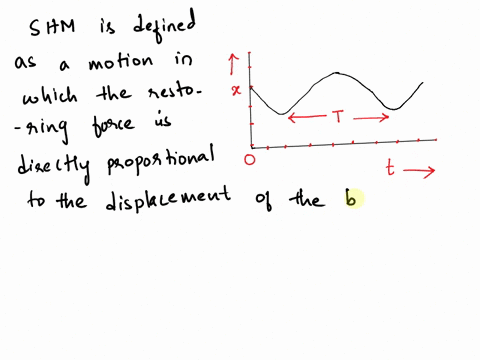 SHM is defined
as a motion in
which the resto-
-ring force is
directly proportional
to the displacement of the b
x
T
O
t